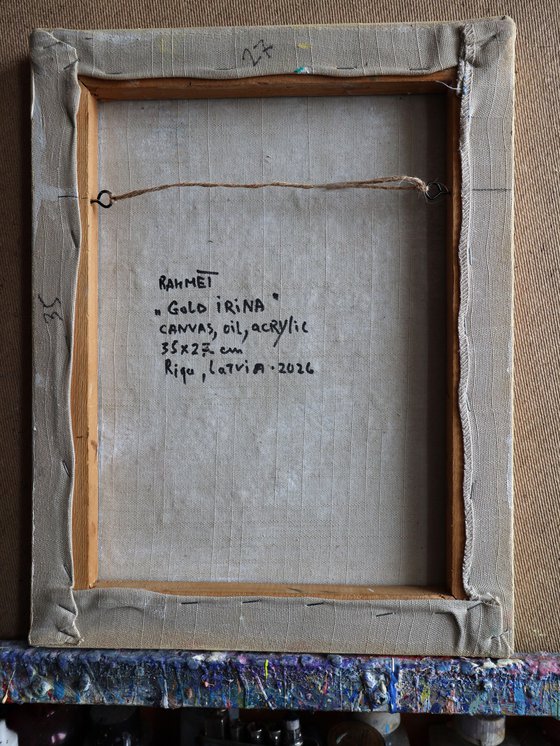 27
35
RAHMET
„GOLD iRiNA"
CANVAS, oil, acrylic
35x27 cm
Riga, LaTviA · 2026